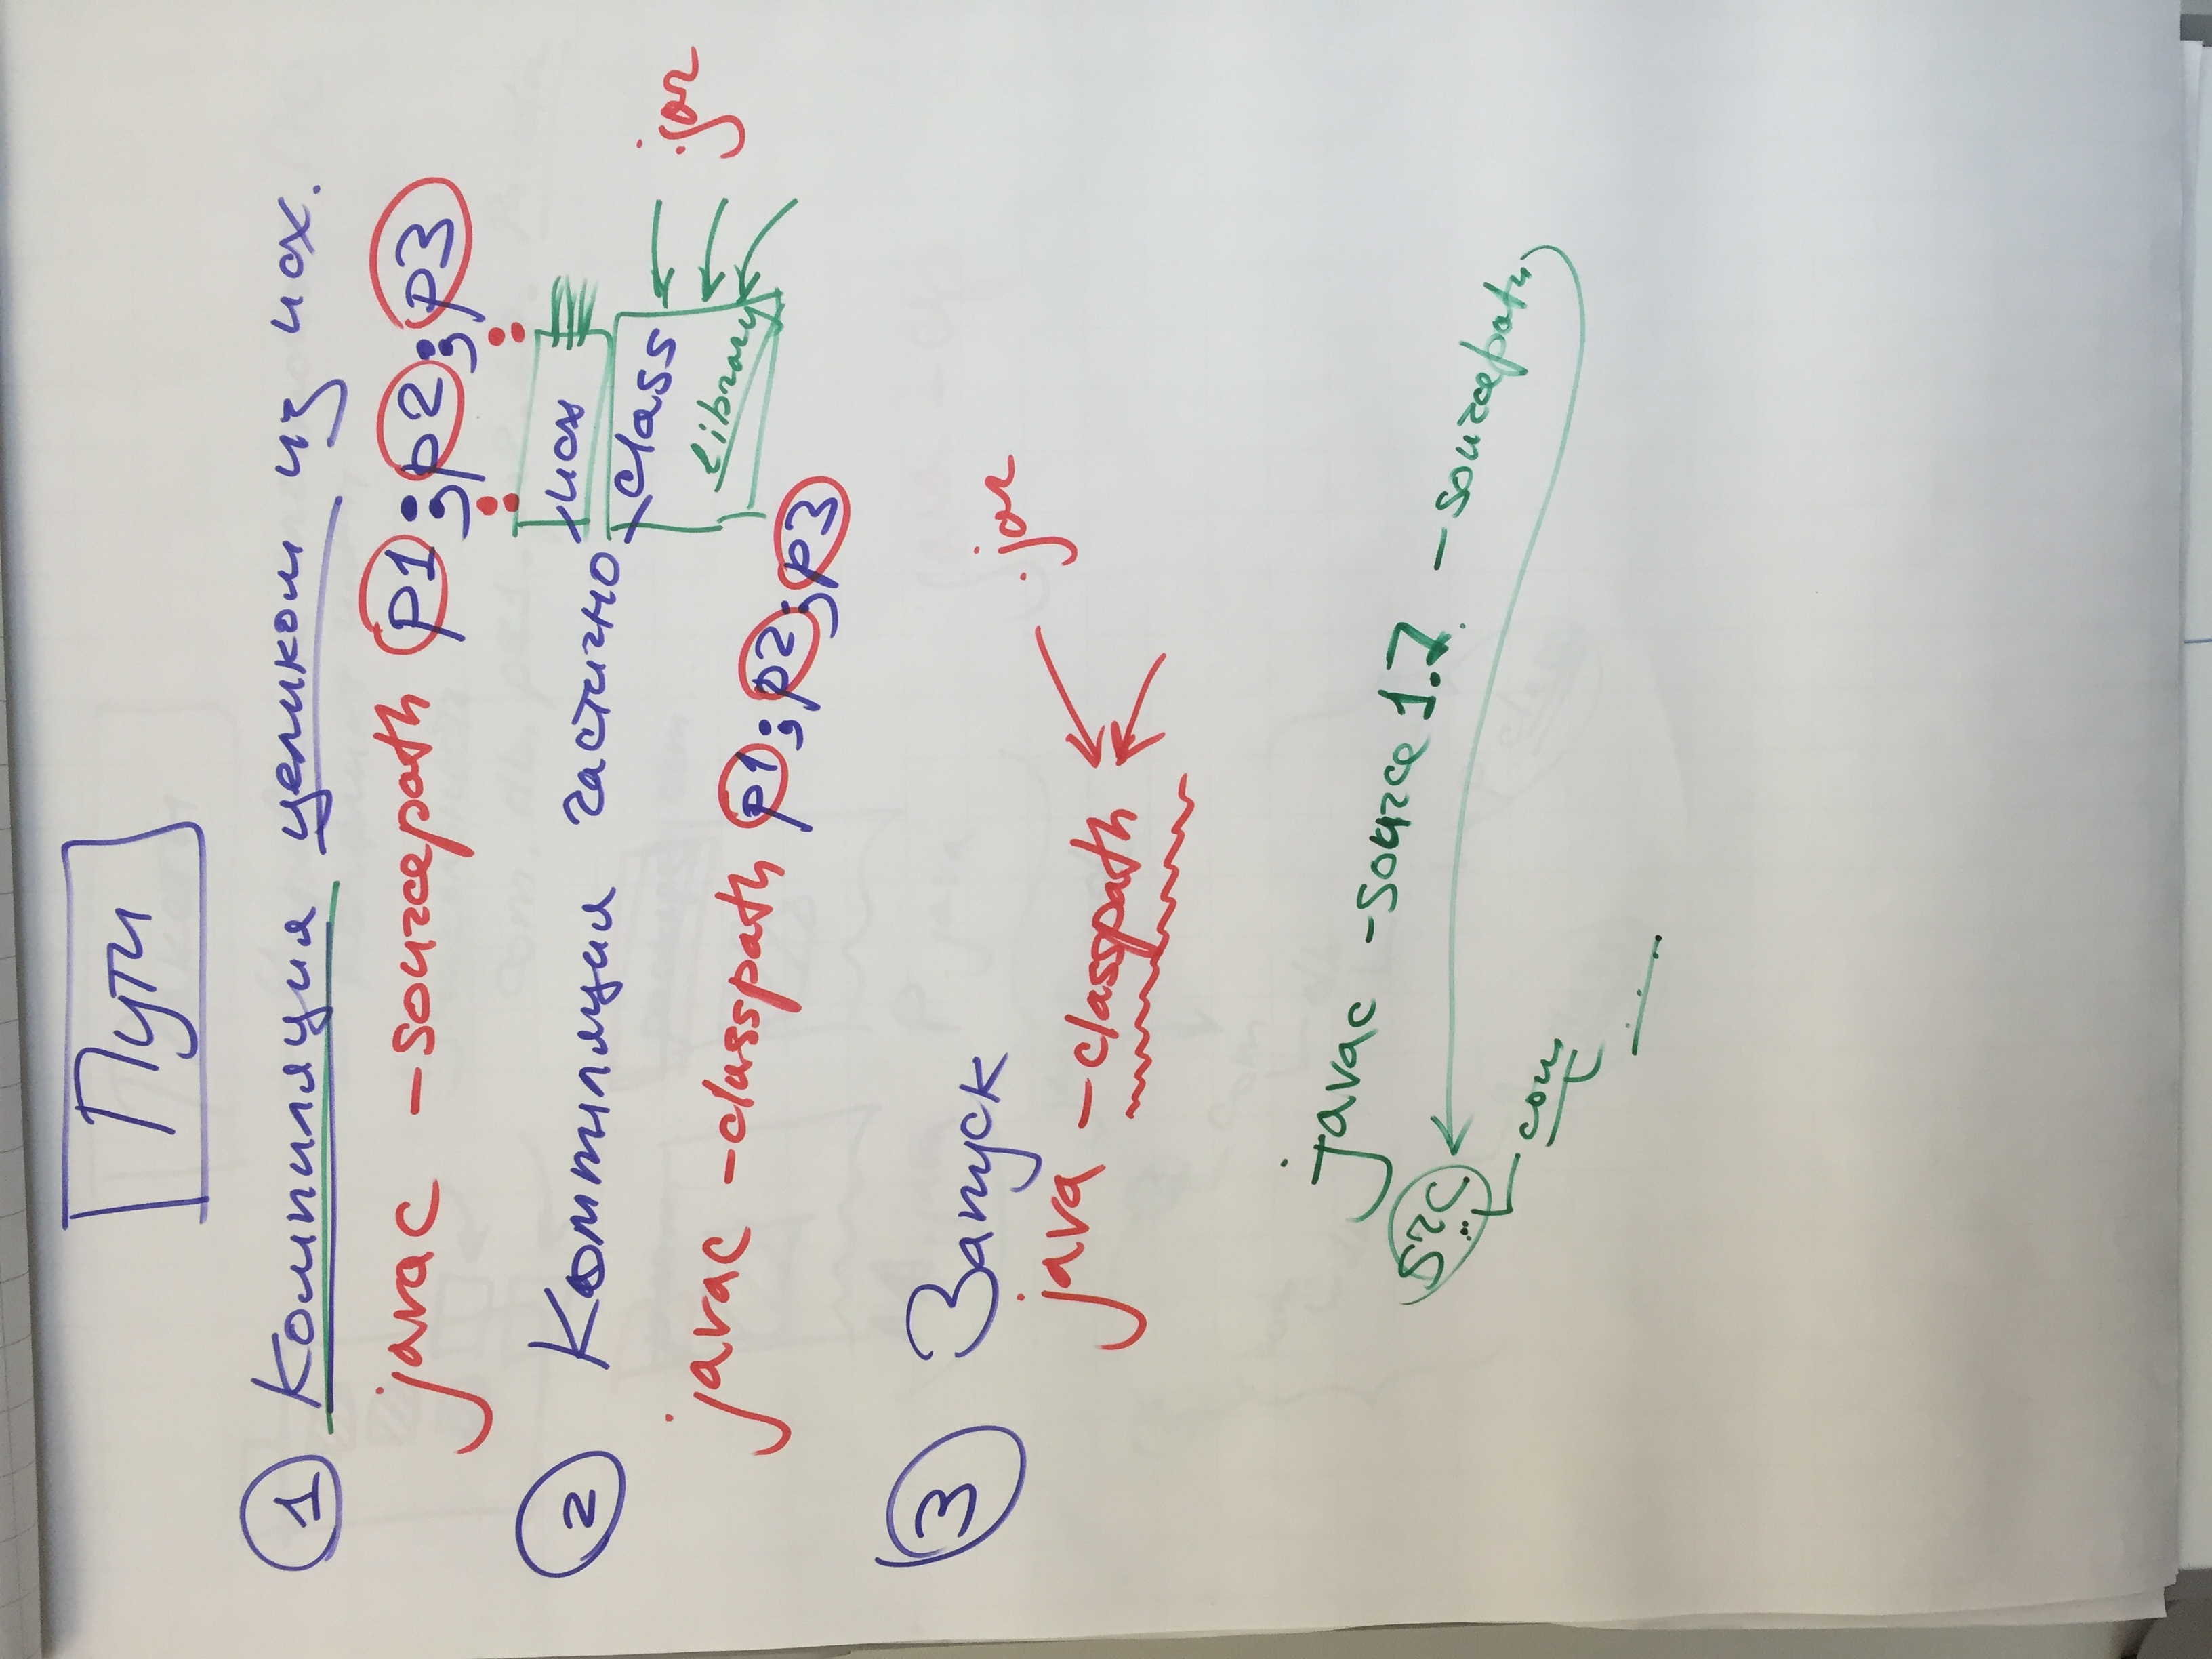 Пути
1 Компиляция целиком из исх.
javac -sourcepath p1;p2;p3
: :
2 Компиляция частично исх
class
library
.jar
javac -classpath p1;p2;p3
3 Запуск
.jar
java -classpath
javac -source 1.7 -sourcepath
src
com
....